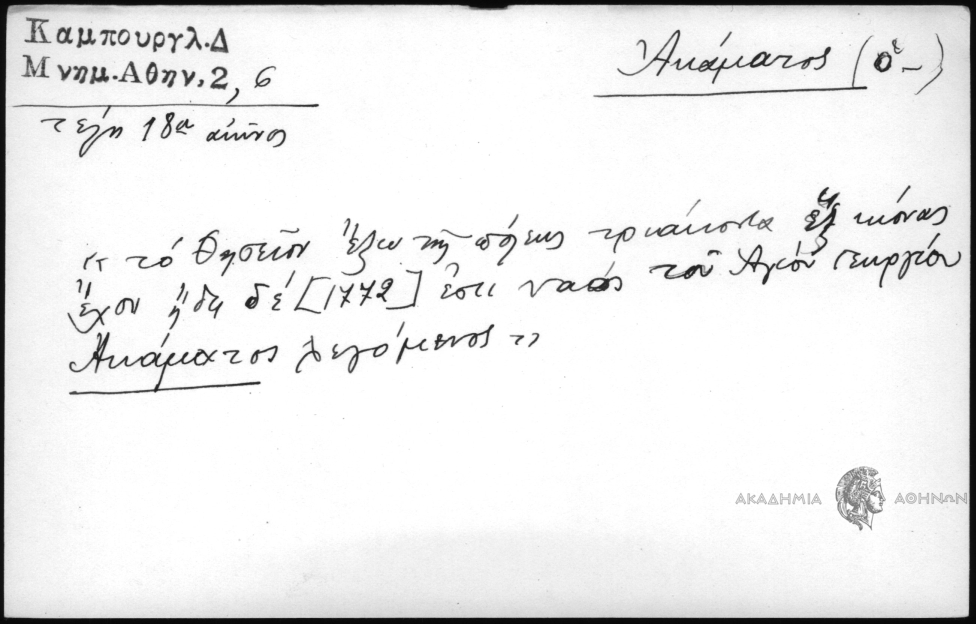 Καμπουργλ.Δ
Μνημ.Αθην.2, 6
τέλη 18ου αιώνος
Ἀκάματος (ὁ -)
« τό Θησεῖον ἔξω τῆς πόλεως τριάκοντα ἕξ κίονας
ἔχον ἤδη δέ [1772] ἐστι ναός τοῦ Ἁγίου Γεωργίου
Ἀκάματος λεγόμενος »
ΑΚΑΔΗΜΙΑ ΑΘΗΝΩΝ